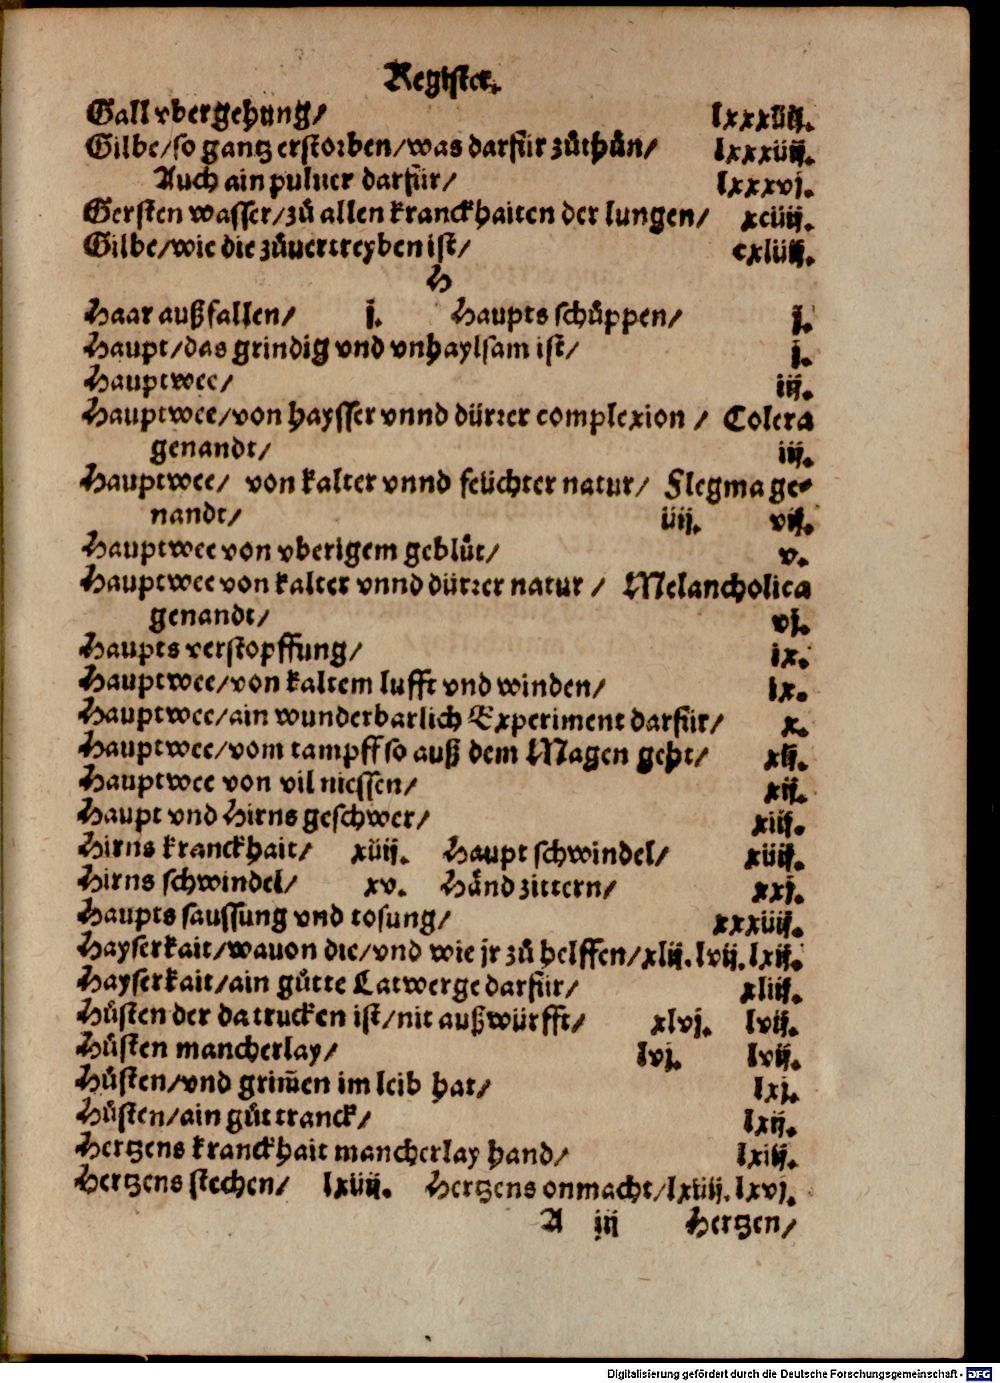 Register.
Gall vbergehung/ lxxxiiij.
Gilbe/so gantz erstorben/was darfür zůthůn/ lxxxiiij.
Auch ain puluer darfür/ lxxxvj.
Gersten wasser/zů allen kranckhaiten der lungen/ xciiij.
Gilbe/wie die zůuertreyben ist/ cxliiij.
H
Haar außfallen/ j. Haupts schůppen/ j.
Haupt/das grindig vnd vnhaylsam ist/ j.
Hauptwee/ iij.
Hauptwee/von haysser vnnd dürrer complexion / Colera
genandt/ iij.
Hauptwee/ von kalter vnnd feüchter natur/ Flegma ge-
nandt/ iiij. vij.
Hauptwee von vberigem geblůt/ v.
Hauptwee von kalter vnnd dürrer natur / Melancholica
genandt/ vj.
Haupts verstopffung/ ix.
Hauptwee/von kaltem lufft vnd winden/ ix.
Hauptwee/ain wunderbarlich Experiment darfür/ x.
Hauptwee/vom tampff so auß dem Magen geht/ xij.
Hauptwee von vil niessen/ xij.
Haupt vnd Hirns geschwer/ xiij.
Hirns kranckhait/ xiiij. Haupt schwindel/ xiiij.
Hirns schwindel/ xv. Händ zittern/ xxj.
Haupts saussung vnd tosung/ xxxiiij.
Hayserkait/wauon die/vnd wie jr zů helffen/xlij.lvij.lxij.
Hayserkait/ain gůtte Latwerge darfür/ xliij.
Hůsten der da trucken ist/nit außwürfft/ xlvj. lvij.
Hůsten mancherlay/ lvj. lvij.
Hůsten/vnd grim̄en im leib hat/ lxj.
Hůsten/ain gůt tranck/ lxij.
Hertzens kranckhait mancherlay hand/ lxiij.
Hertzens stechen/ lxiiij. Hertzens onmacht/lxiiij.lxvj.
A iij Hertzen/
Digitalisierung gefördert durch die Deutsche Forschungsgemeinschaft - DFG